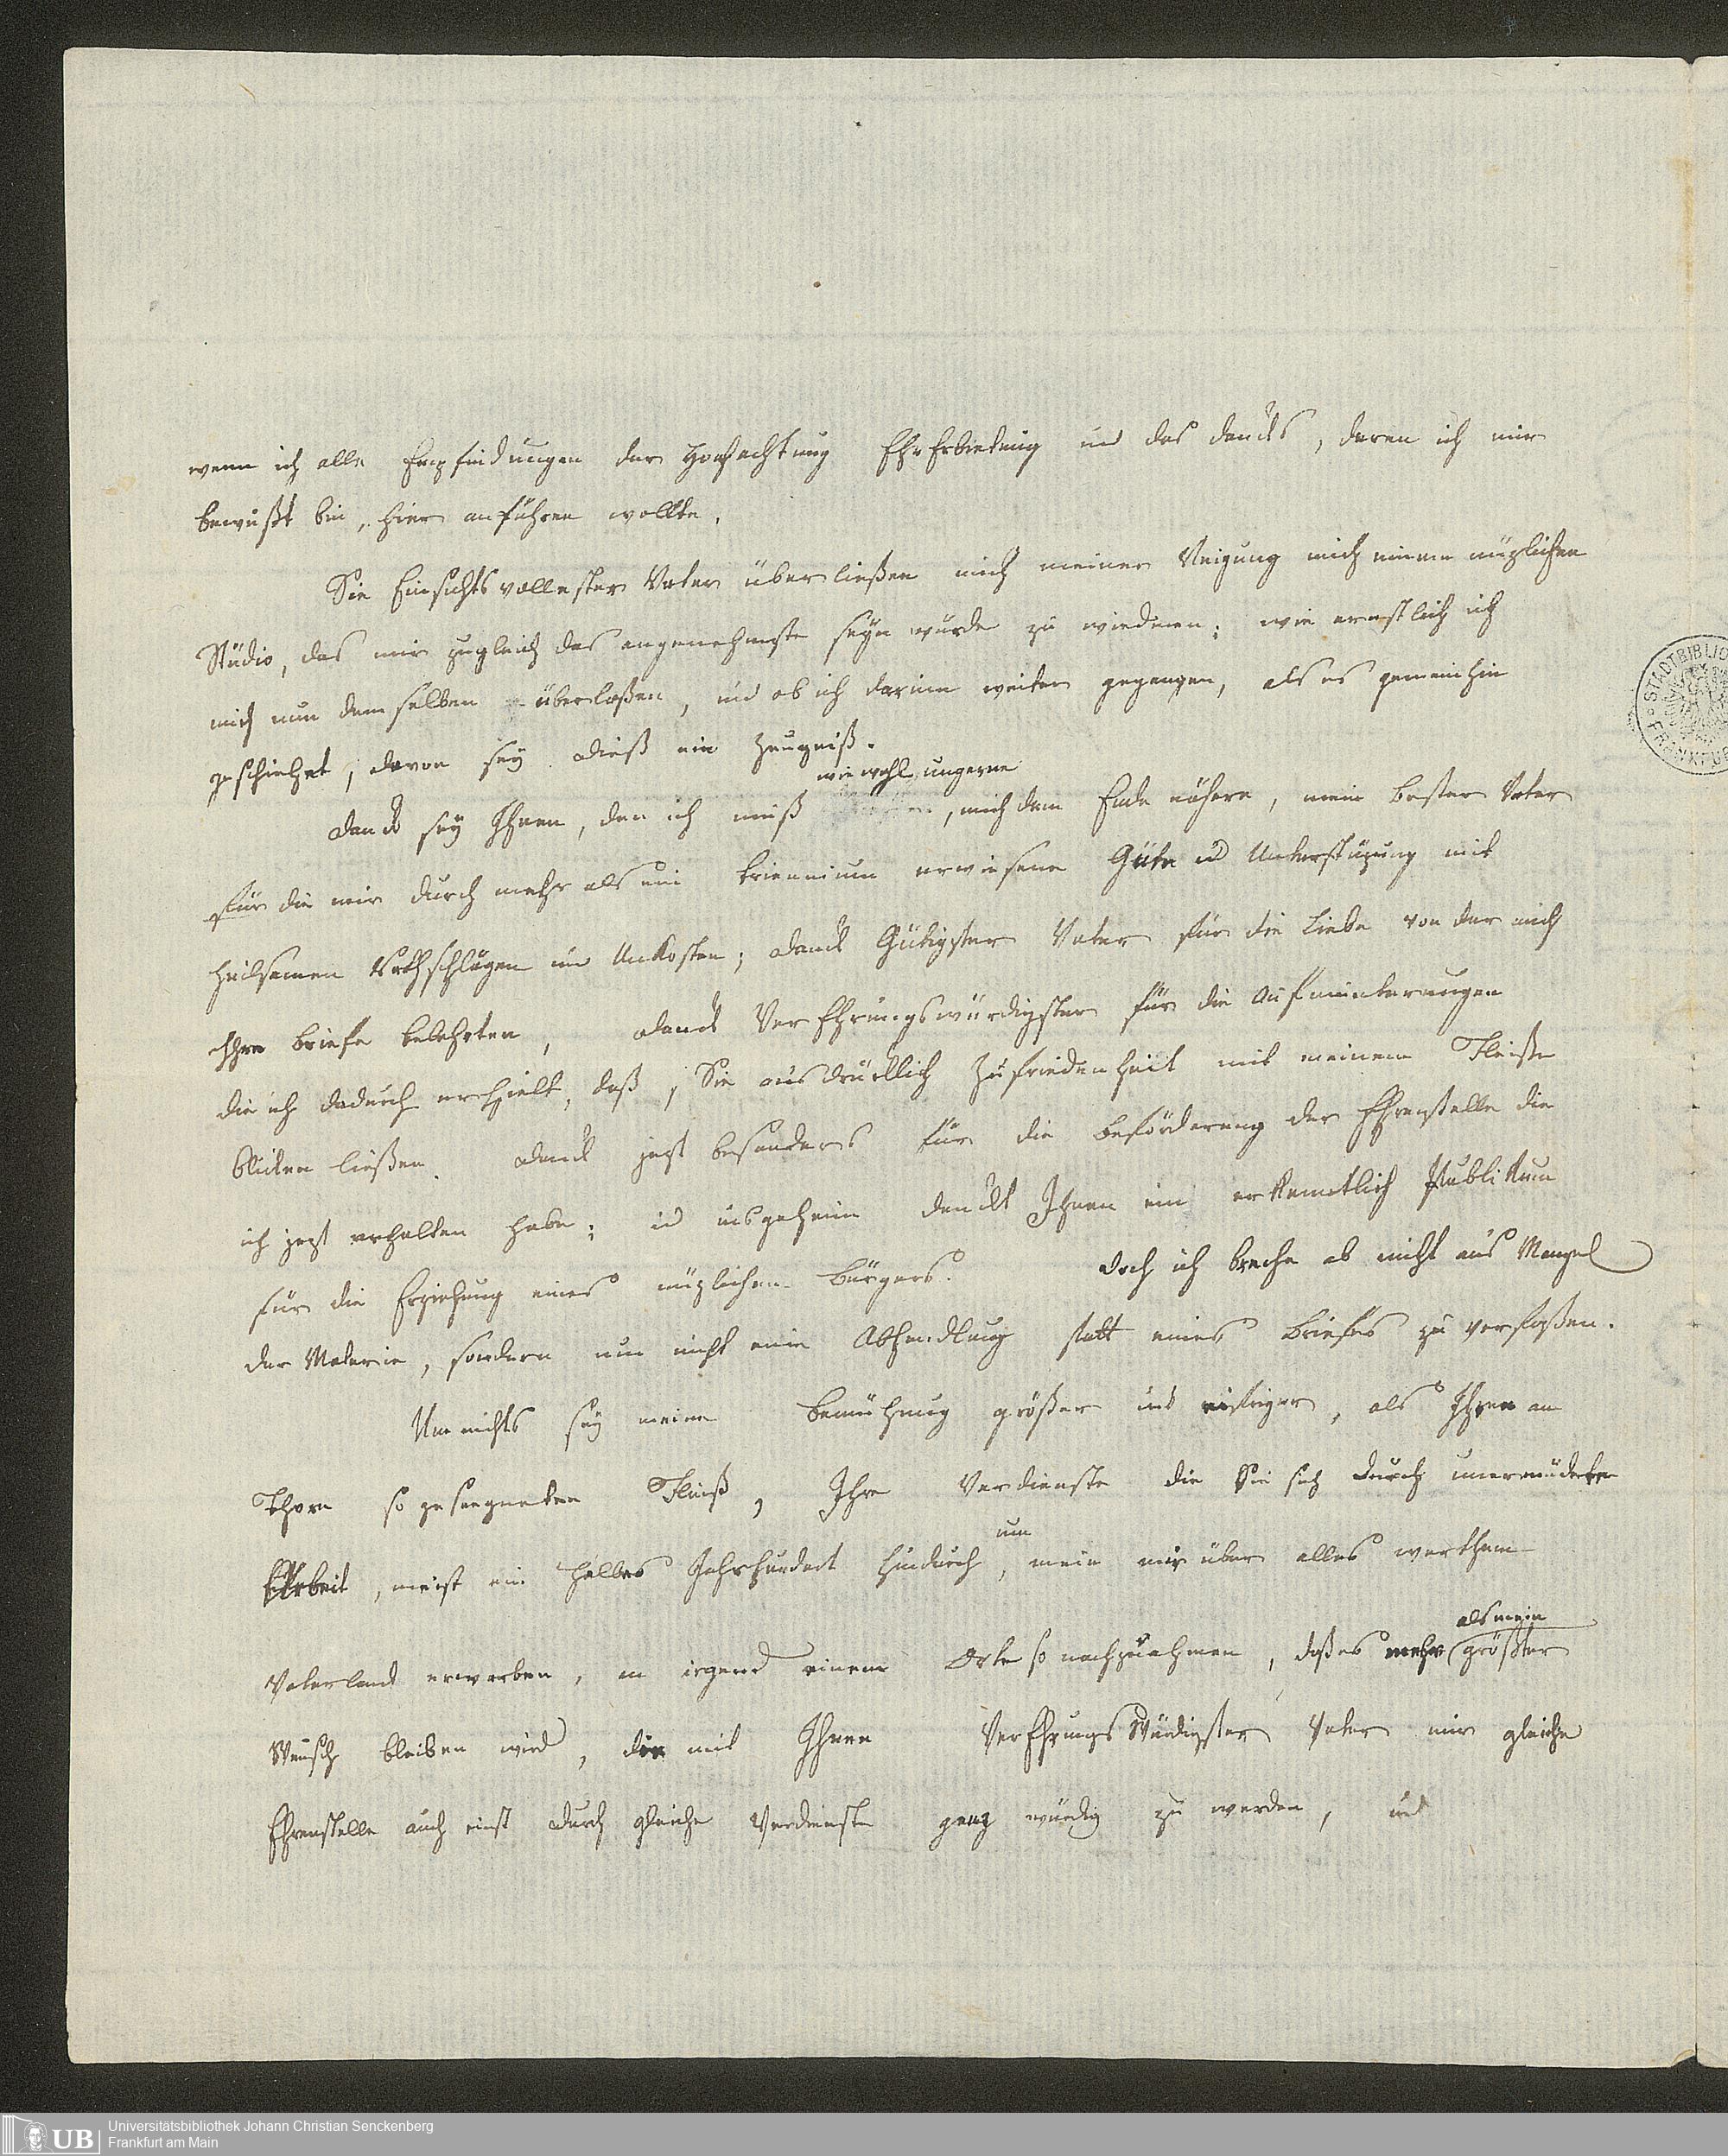 wenn ich alle Empfindungen der Hochachtung EhrErbietung und des Dancks, deren ich mir
bewußt bin, hier anführen wollte.
Sie Einsichtsvollester Vater überließen mich meiner Neigung mich einem nüzlichen
Studio, das mir zugleich das angenehmste seyn würde zu wiedmen; wie ernstlich ich
mich nun demselben überlaßen, und ob ich darinn weiter gegangen, als es gemeinhin
geschiehet, davon sey dieß ein Zeugniß.
wiewohl ungerne
Danck sey Ihnen, den ich muß , mich dem Ende nähern, mein bester Vater
für die mir durch mehr als ein triennium erwiesene Güte und Unterstüzung mit
heilsamen Rathschlägen und Unkosten; Danck Gütigster Vater für die Liebe von der mich
Ihre Briefe belehrten, Danck VerEhrungswürdigster für die Aufmunterungen
die ich dadurch erhielt, daß Sie ausdrücklich Zufriedenheit mit meinem Fleiße
blicken ließen. Danck jezt besonders für die Beförderung der Ehrenstelle die
ich jezt erhalten habe; und insgeheim danckt Ihnen ein erkenntlich Publikum
für die Erziehung eines nüzlichen Bürgers. Doch ich breche ab nicht aus Mangel
der Materie, sondern um nicht eine Abhandlung statt eines Briefes zu verfaßen.
Um nichts sey meine Bemühung größer und eifriger, als Ihren an
Thorn so geseegneten Fleiß, Ihre Verdienste die Sie sich durch unermüdete
um
Arbeit, meist ein halbes Jahrhundert hindurch, mein mir über alles werthem
als mein
Vaterland erworben, an irgend einem Orte so nachzuahmen, daß es mehr größter
Wunsch bleiben wird, die mit Ihnen VerEhrungsWürdigster Vater mir gleiche
Ehrenstelle auch einst durch gleiche Verdienste ganz würdig zu werden, und
STADTBIBLIO
FRANKFUR
UB
Universitätsbibliothek Johann Christian Senckenberg
Frankfurt am Main